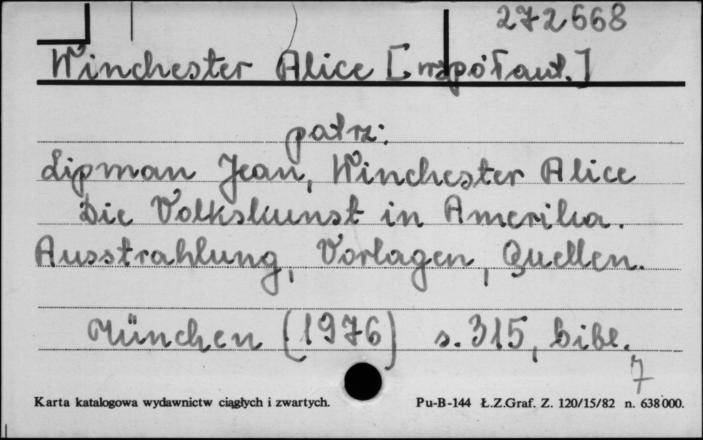 272668
Winchester Alice [współaut.]
patrz:
Lipman Jean, Winchester Alice
Die Volkskunst in Amerika.
Ausstrahlung, Vorlagen, Quellen.
München (1976) s. 315, bibl.
7
Karta katalogowa wydawnictw ciągłych i zwartych. Pu-B-144 Ł.Z.Graf. Z. 120/15/82 n. 638 000.